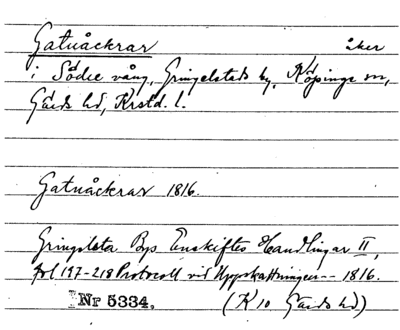 Gatuåckrar åker
i Södre vång, Gringelstads by, Köpinge sn,
Gärds hd, Krstd. l.
Gatuåckrar 1816.
Gringelsta Bys Enskiftes Handlingar II,
fol 197-218 Protocoll vid Uppskattningen -- 1816.
Nr 5334. (K 10 Gärds hd)